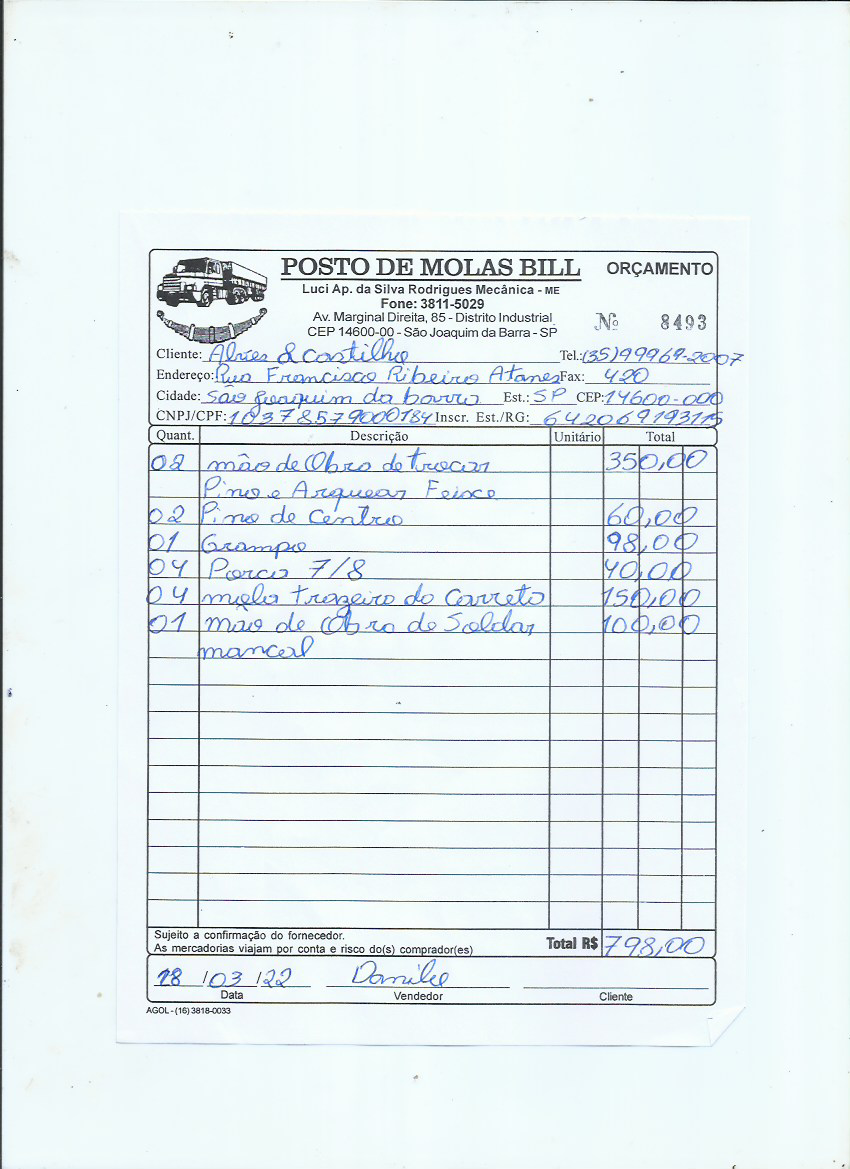 POSTO DE MOLAS BILL
ORÇAMENTO
Luci Ap. da Silva Rodrigues Mecânica - ME
Fone: 3811-5029
Av. Marginal Direita, 85 - Distrito Industrial
CEP 14600-00 - São Joaquim da Barra - SP
Nº 8493
Cliente: Alves & Castilho Tel.: (35)99969-2007
Endereço: Rua Francisco Ribeiro Atanes Fax: 420
Cidade: São Joaquim da barra Est.: SP CEP: 14600-000
CNPJ/CPF: 10378579000184 Inscr. Est./RG: 642069193115
Quant. Descrição Unitário Total
02 mão de Obra de trocar 350,00
Pino e Arquear Feixe
02 Pino de Centro 60,00
01 Grampo 98,00
04 Porca 7/8 40,00
04 mola trazeiro do Carreto 150,00
01 mão de Obra de Soldar 100,00
mancal
Sujeito a confirmação do fornecedor.
As mercadorias viajam por conta e risco do(s) comprador(es)
Total R$ 798,00
18 /03 /22 Danilo
Data Vendedor Cliente
AGOL - (16) 3818-0033